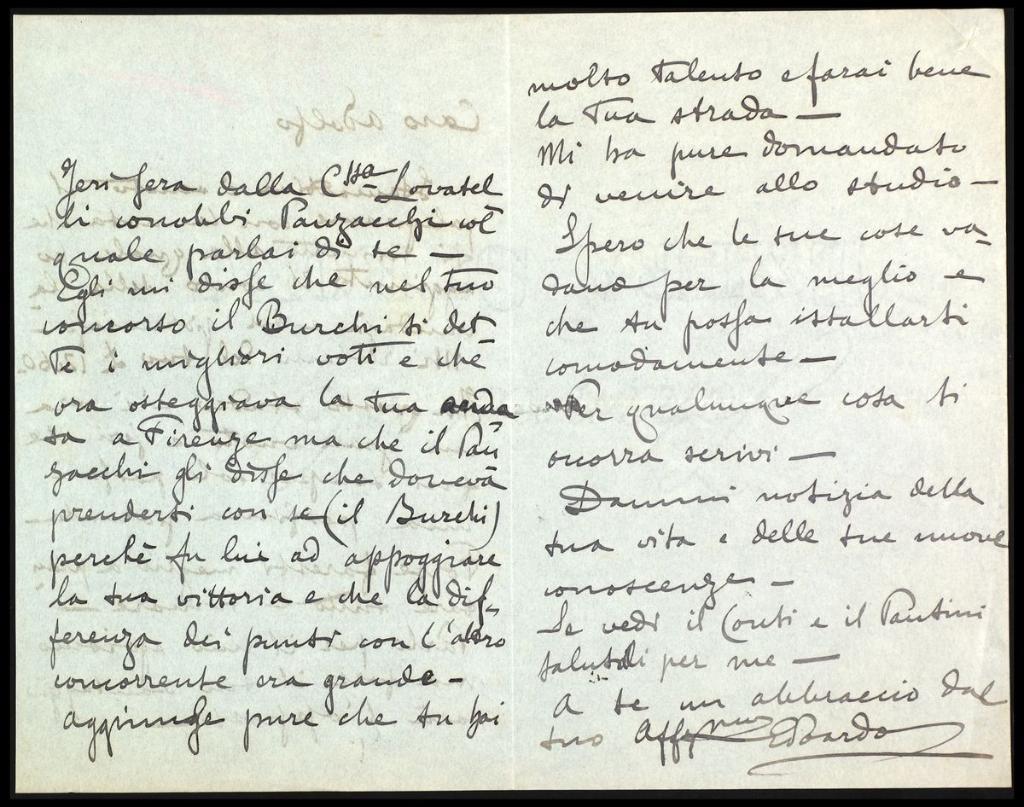 Jeri sera dalla C.ssa Lovatel
li conobbi Panzacchi col
quale parlai di te —
Egli mi disse che nel tuo
concorso il Burchi ti det
te i migliori voti e che
ora osteggiava la tua anda
ta a Firenze ma che il Pan
zacchi gli disse che doveva
prendersi con se (il Burchi)
perchè fu lui ad appoggiare
la tua vittoria e che la dif-
ferenza dei punti con l'altro
concorrente era grande —
aggiunse pure che tu hai
molto talento e farai bene
la tua strada —
Mi ha pure domandato
di venire allo studio —
Spero che le tue cose va-
dano per la meglio e
che tu possa istallarti
comodamente —
Per qualunque cosa ti
occorra scrivi —
Dammi notizia della
tua vita e delle tue nuove
conoscenze —
Se vedi il Conti e il Pantini
salutali per me —
A te un abbraccio dal
tuo Aff.mo Edoardo
Caro Adolfo